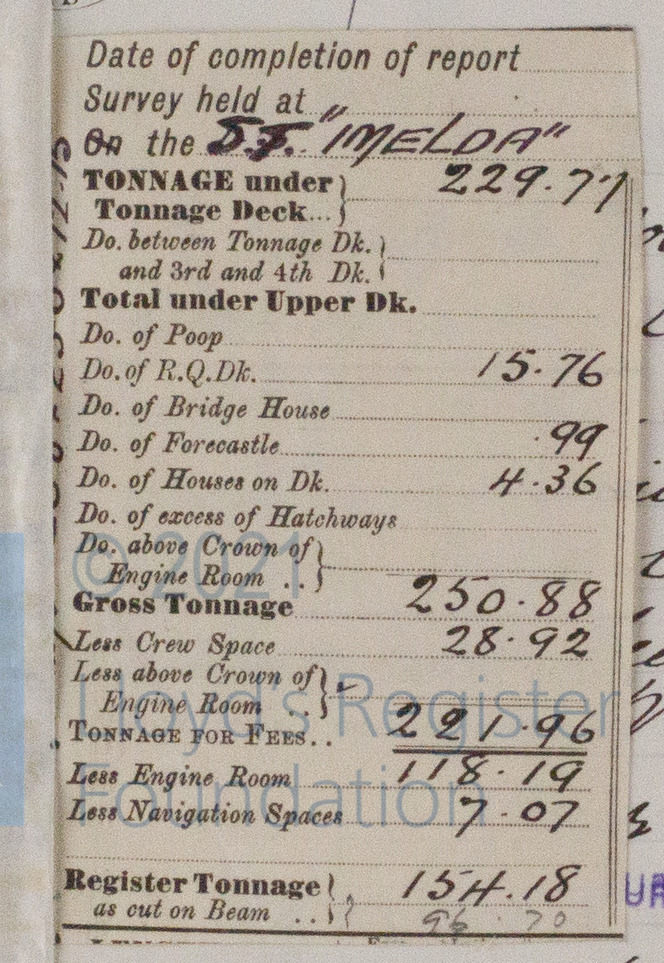 Date of completion of report
Survey held at
On the S.S. "IMELDA"
TONNAGE under
Tonnage Deck... 229.77
Do. between Tonnage Dk.
and 3rd and 4th Dk.
Total under Upper Dk.
Do. of Poop
Do. of R.Q.Dk. 15.76
Do. of Bridge House
Do. of Forecastle .99
Do. of Houses on Dk. 4.36
Do. of excess of Hatchways
Do. above Crown of
Engine Room ..
Gross Tonnage 250.88
Less Crew Space 28.92
Less above Crown of
Engine Room ..
TONNAGE FOR FEES.. 221.96
Less Engine Room 118.19
Less Navigation Spaces 7.07
Register Tonnage 154.18
as cut on Beam .. 96.70
© 2021
Lloyd's Register
Foundation
UR